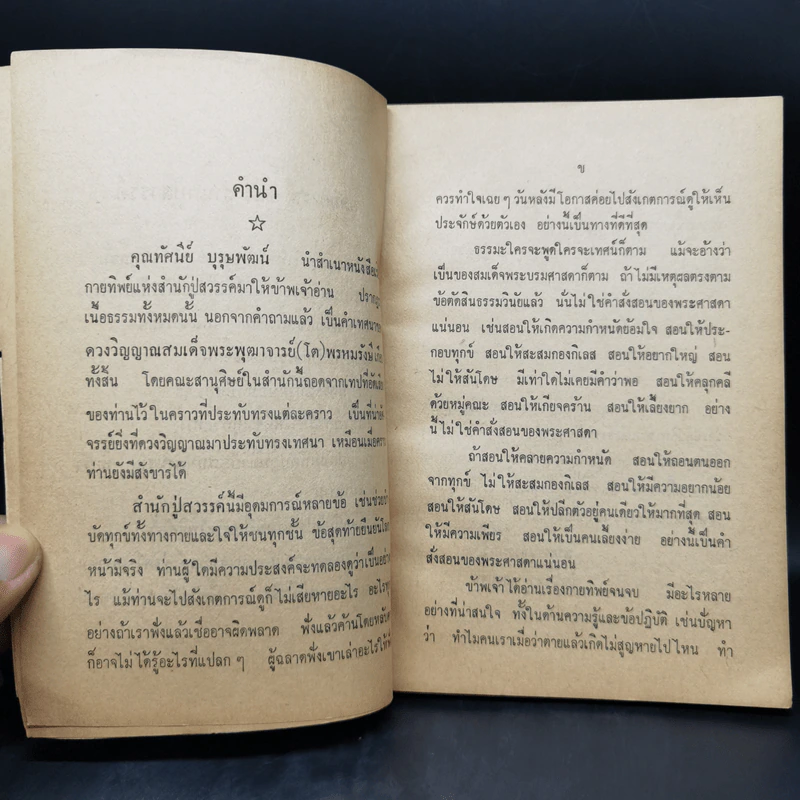 คำนำ
คุณทัศนีย์ บุรุษพัฒน์ นำสำเนาหนังสือ
กายทิพย์แห่งสำนักปู่สวรรค์มาให้ข้าพเจ้าอ่าน
เนื้อธรรมทั้งหมดนั้น นอกจากคำถามแล้ว เป็นคำเทศนา
ดวงวิญญาณสมเด็จพระพุฒาจารย์(โต)พรหมรังษี
ทั้งสิ้น โดยคณะสานุศิษย์ในสำนักนี้ถอดจากเทปที่อัด
ของท่านไว้ในคราวที่ประทับทรงแต่ละคราว เป็นที่น่า
จรรย์ยิ่งที่ดวงวิญญาณมาประทับทรงเทศนา เหมือนเมื่อ
ท่านยังมีสังขารได้
สำนักปู่สวรรค์นี้มีอุดมการณ์หลายข้อ เช่นช่วย
บัดทุกข์ทั้งทางกายและใจให้ชนทุกชั้น ข้อสุดท้ายยืนยัน
หน้ามีจริง ท่านผู้ใดมีความประสงค์จะทดลองดูว่าเป็น
ไร แม้ท่านจะไปสังเกตการณ์ดูก็ไม่เสียหายอะไร
อย่างถ้าเราฟังแล้วเชื่ออาจผิดพลาด ฟังแล้วค้านโดย
ก็อาจไม่ได้รู้อะไรที่แปลกๆ ผู้ฉลาดฟังเขาเล่าอะไรให้
ข
ควรทำใจเฉยๆ วันหลังมีโอกาสค่อยไปสังเกตการณ์ดูให้เห็น
ประจักษ์ด้วยตัวเอง อย่างนี้เป็นทางที่ดีที่สุด
ธรรมะใครจะพูดใครจะเทศน์ก็ตาม แม้จะอ้างว่า
เป็นของสมเด็จพระบรมศาสดาก็ตาม ถ้าไม่มีเหตุผลตรงตาม
ข้อตัดสินธรรมวินัยแล้ว นั่นไม่ใช่คำสั่งสอนของพระศาสดา
แน่นอน เช่นสอนให้เกิดความกำหนัดย้อมใจ สอนให้ประ-
กอบทุกข์ สอนให้สะสมกองกิเลส สอนให้อยากใหญ่ สอน
ไม่ให้สันโดษ มีเท่าใดไม่เคยมีคำว่าพอ สอนให้คลุกคลี
ด้วยหมู่คณะ สอนให้เกียจคร้าน สอนให้เลี้ยงยาก อย่าง
นี้ไม่ใช่คำสั่งสอนของพระศาสดา
ถ้าสอนให้คลายความกำหนัด สอนให้ถอนตนออก
จากทุกข์ ไม่ให้สะสมกองกิเลส สอนให้มีความอยากน้อย
สอนให้สันโดษ สอนให้ปลีกตัวอยู่คนเดียวให้มากที่สุด สอน
ให้มีความเพียร สอนให้เป็นคนเลี้ยงง่าย อย่างนี้เป็นคำ
สั่งสอนของพระศาสดาแน่นอน
ข้าพเจ้าได้อ่านเรื่องกายทิพย์จนจบ มีอะไรหลาย
อย่างที่น่าสนใจ ทั้งในด้านความรู้และข้อปฏิบัติ เช่นปัญหา
ว่า ทำไมคนเราเมื่อว่าตายแล้วเกิดไม่สูญหายไปไหน ทำ